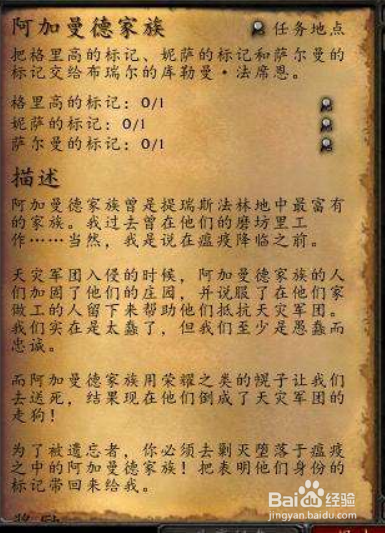 阿加曼德家族
任务地点
把格里高的标记、妮萨的标记和萨尔曼的
标记交给布瑞尔的库勒曼·法席恩。
格里高的标记：0/1
妮萨的标记：0/1
萨尔曼的标记：0/1
描述
阿加曼德家族曾是提瑞斯法林地中最富有
的家族。我过去曾在他们的磨坊里工
作……当然，我是说在瘟疫降临之前。
天灾军团入侵的时候，阿加曼德家族的人
们加固了他们的庄园，并说服了在他们家
做工的人留下来帮助他们抵抗天灾军团。
我们实在是太蠢了，但我们至少是愚蠢而
忠诚。
而阿加曼德家族用荣耀之类的幌子让我们
去送死，结果现在他们倒成了天灾军团的
走狗！
为了被遗忘者，你必须去剿灭堕落于瘟疫
之中的阿加曼德家族！把表明他们身份的
标记带回来给我。
Baidu经验
jingyan.baidu.com